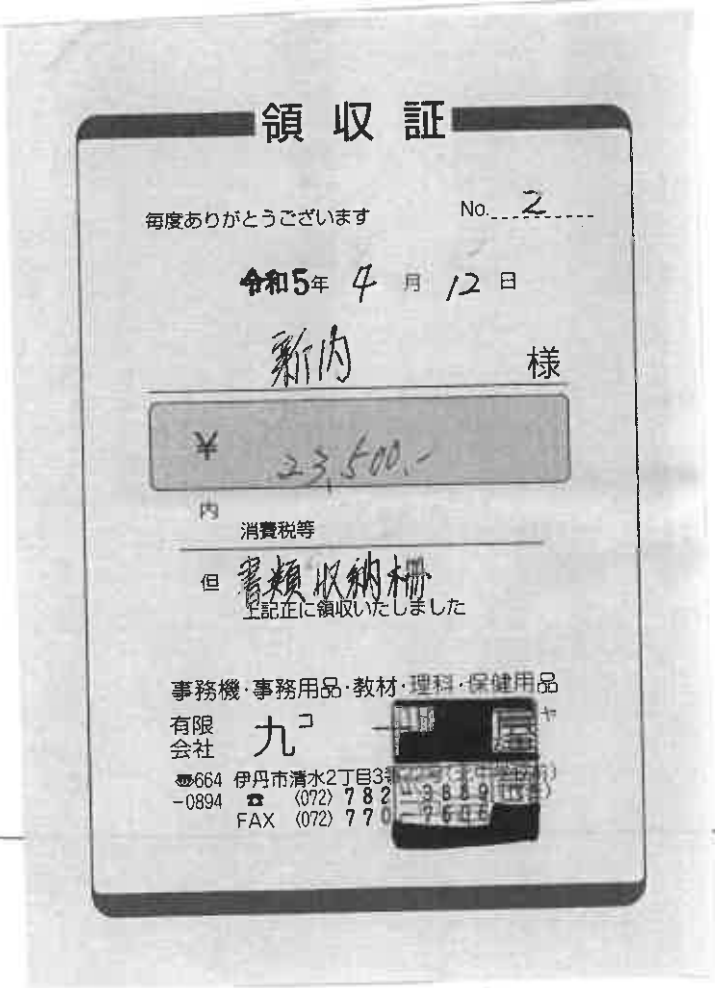 領収証
毎度ありがとうございます No. 2
令和5年 4月 12日
新内 様
¥ 23,500.-
内 消費税等
但 書類収納棚
上記正に領収いたしました
事務機・事務用品・教材・理科・保健用品
有限会社 九コ一 屋ヤ
〒664-0894 伊丹市清水2丁目3番
☎ (072) 782-3889
FAX (072) 770-7606